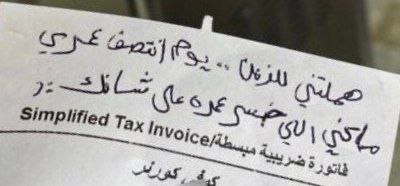 هملتني للزمن .. يوم انتصف عمري
ماكني اللي خسر عمره على شانك :(
Simplified Tax Invoice/فاتورة ضريبية مبسطة
كوفي كورنر